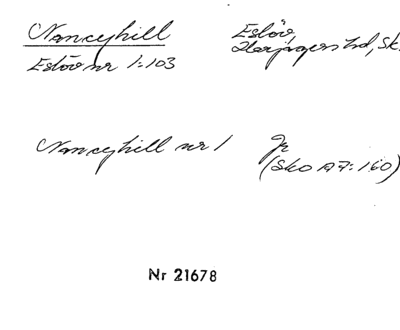 Nancyhill
Eslöv nr 1:103
Eslöv,
Harjagers hd, Sk.
Nancyhill nr 1
Jr
(SkO A7:160)
Nr 21678